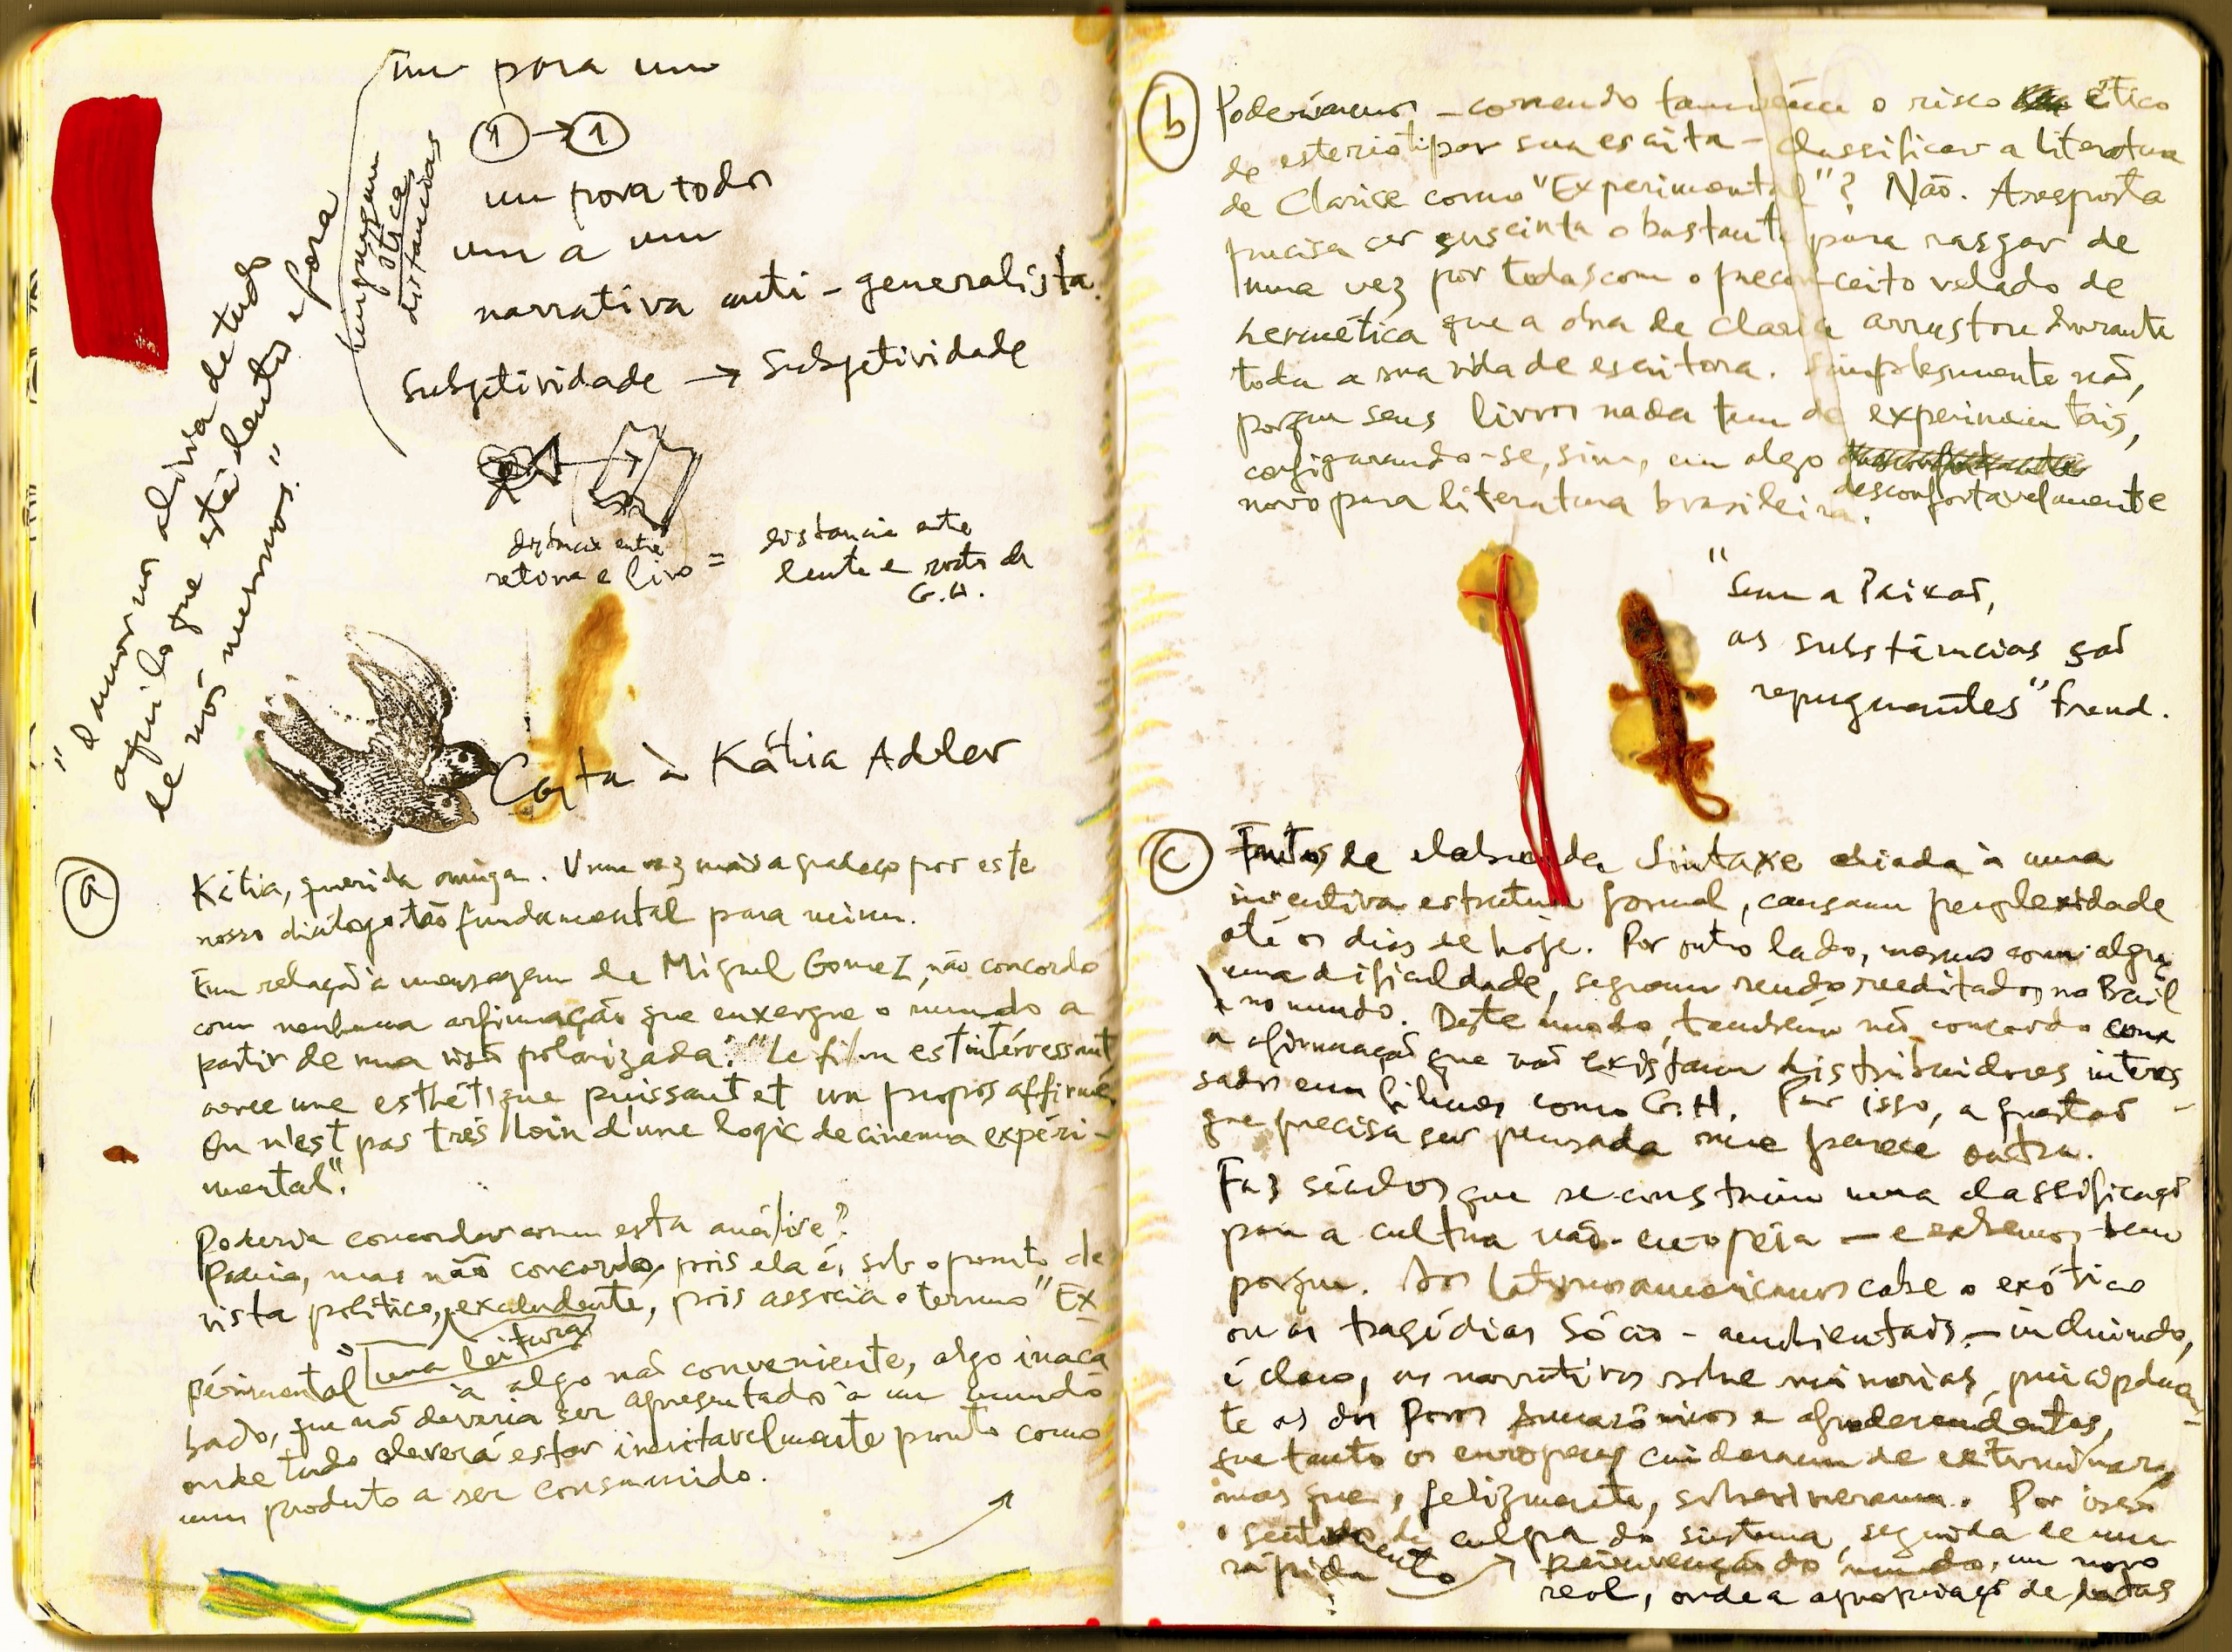 um para um
1 → 1
um para todos
um a um
narrativa anti-generalista.
subjetividade → subjetividade
linguagem
ótica
distancias
"o amor nos alivia de tudo
aquilo que está dentro e fora
de nós mesmos."
distancia entre
retina e livro =
distancia entre
lente e rosto de
G.H.
Carta à Kátia Adler
a
Kátia, querida amiga. Uma vez mais agradeço por este
nosso diálogo tão fundamental para mim.
Em relação à mensagem de Miguel Gomez, não concordo
com nenhuma afirmação que enxergue o mundo a
partir de uma visão polarizada: "Le film est intéressant,
avec une esthétique puissant et un propos affirmé,
On n'est pas très loin d'une logic de cinema expéri-
mental".
Poderia concordar com esta análise?
Poderia, mas não concordo, pois ela é, sob o ponto de
vista politico, excludente, pois associa o termo "Ex
périmental"
uma leitura
à algo não conveniente, algo inaca
bado, que não deveria ser apresentado à um mundo
onde tudo deverá estar inevitavelmente pronto como
um produto a ser consumido.
b
Poderiamos - correndo também o risco ético
de esteriotipar sua escrita - classificar a literatura
de Clarice como "Experimental"? Não. A resposta
precisa ser suscinta o bastante para rasgar de
uma vez por todas com o preconceito velado de
hermética que a obra de Clarice arrastou durante
toda a sua vida de escritora. Simplesmente não,
porque seus livros nada tem de experimentais,
configurando-se, sim, em algo
desconfortavelmente
novo para literatura brasileira.
"Sem a Paixão,
as substâncias são
repugnantes" Freud.
c
Frutos de elaborada Sintaxe aliada à uma
inventiva estrutura formal, causam perplexidade
até os dias de hoje. Por outro lado, mesmo com algu
ma dificuldade, seguem sendo reeditados no Brasil
e no mundo. Deste modo, também não concordo com
a afirmação que não existam distribuidores interes
sados em filmes como G.H. Por isso, a questão
que precisa ser pensada me parece outra.
Faz séculos que se construiu uma classificação
para a cultura não-européia - e sabemos bem
porque. Aos latinoamericanos cabe o exótico
ou as tragédias Sócio-ambientais - incluindo,
é claro, as narrativas sobre minorias, principalmen
te as dos Povos e afrodescendentes,
que tanto os europeus cuidaram de exterminar,
mas que, felizmente, sobreviveram. Por isso
o sentimento de culpa do sistema, seguida de uma
rápida → reinvenção do mundo, um novo
real, onde a apropriação de